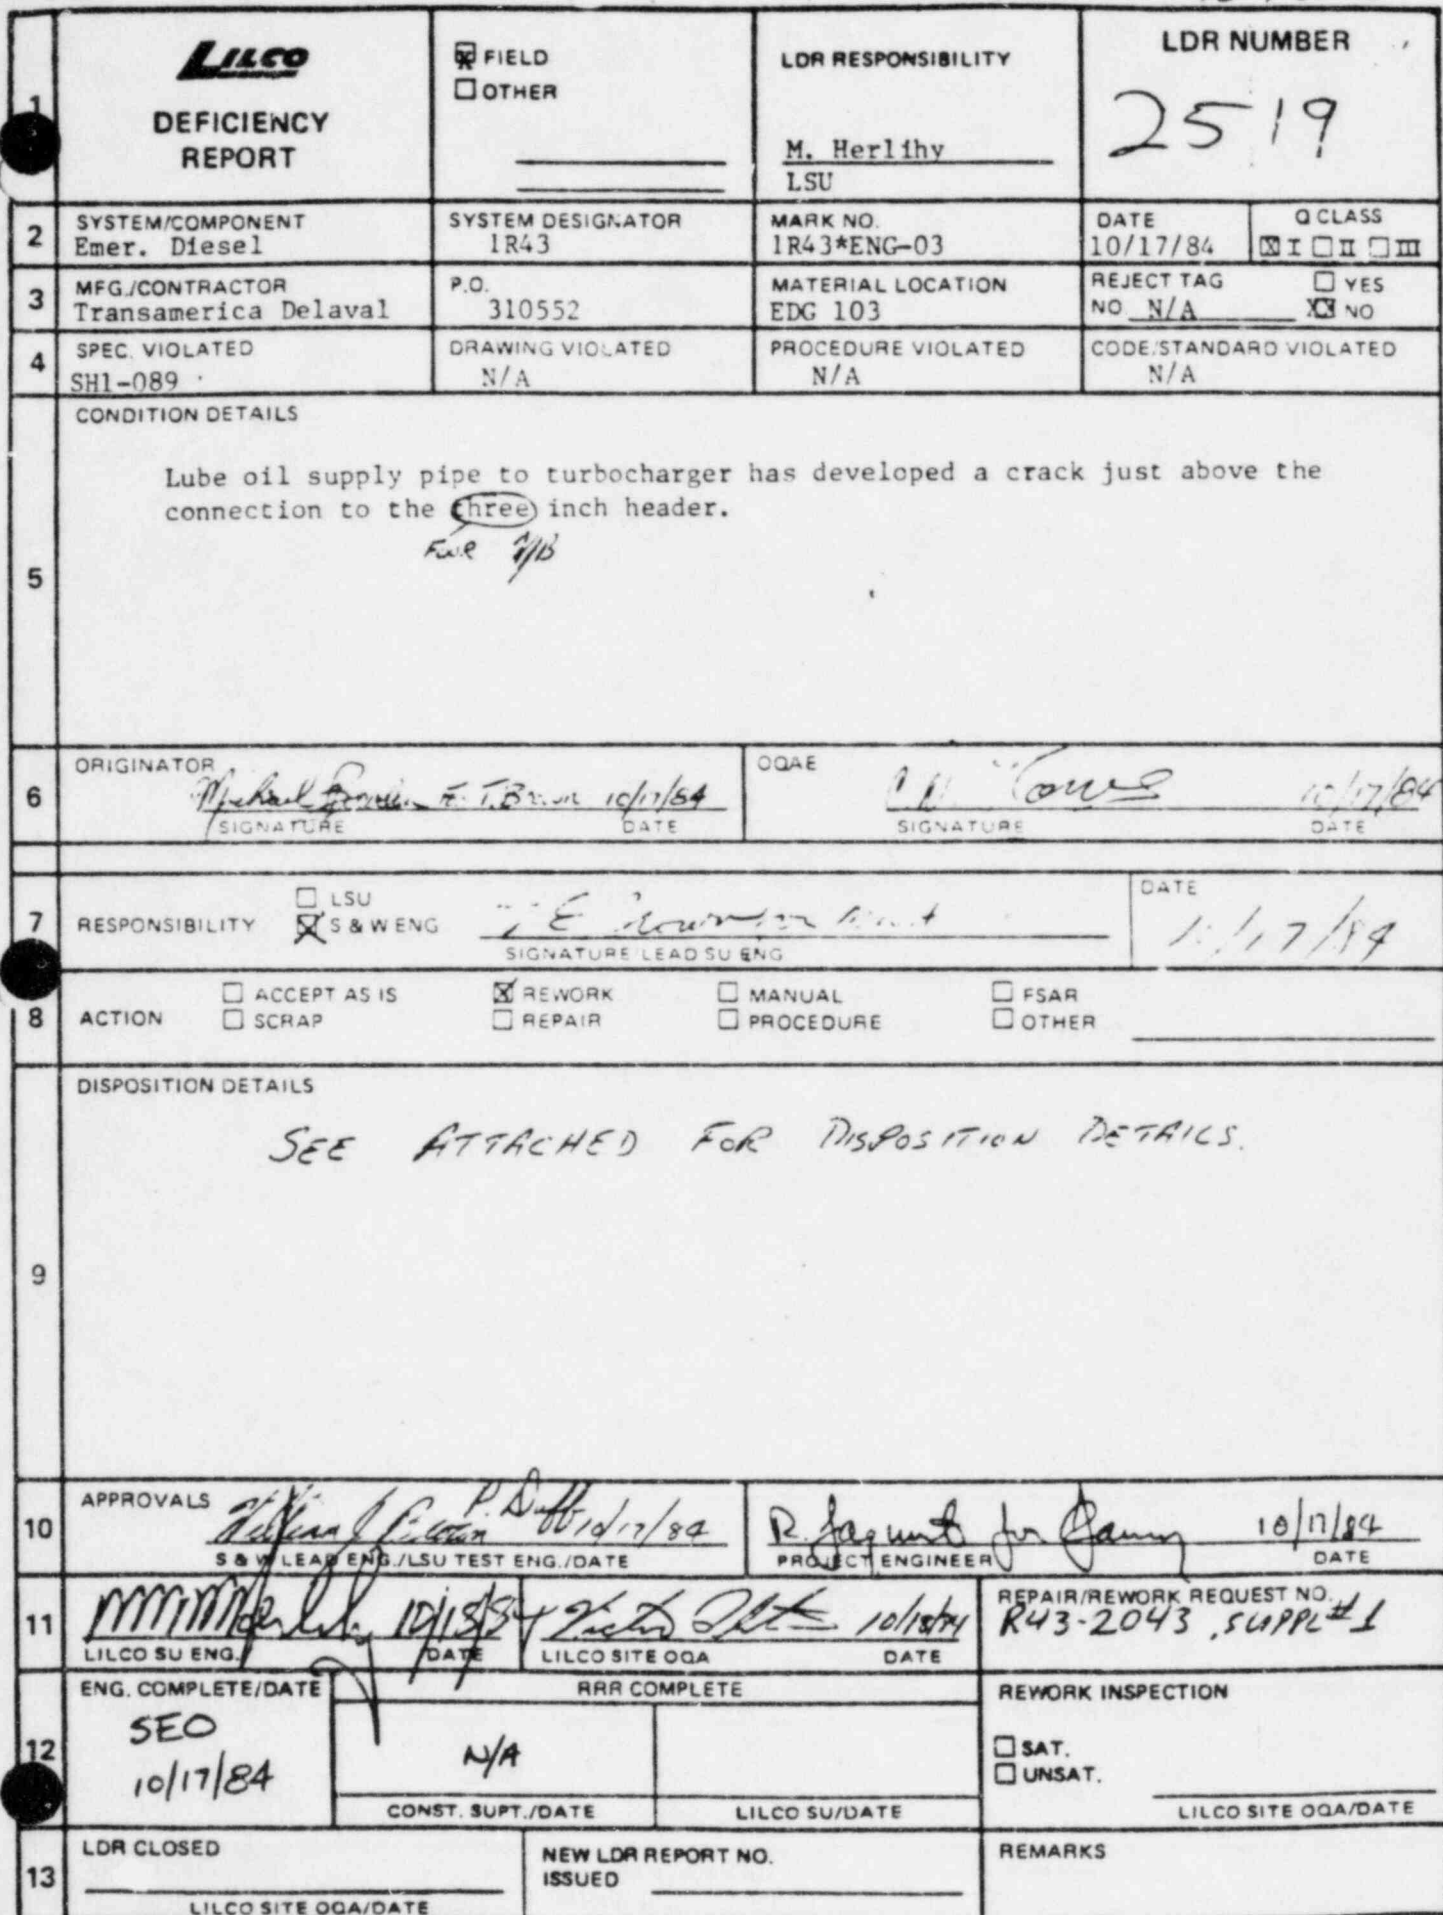 LILCO
DEFICIENCY
REPORT
☒ FIELD
☐ OTHER
LDR RESPONSIBILITY
M. Herlihy
LSU
LDR NUMBER
2519
1
2
SYSTEM/COMPONENT
Emer. Diesel
SYSTEM DESIGNATOR
1R43
MARK NO.
1R43*ENG-03
DATE
10/17/84
Q CLASS
☒ I ☐ II ☐ III
3
MFG./CONTRACTOR
Transamerica Delaval
P.O.
310552
MATERIAL LOCATION
EDG 103
REJECT TAG
NO N/A
☐ YES
☒ NO
4
SPEC. VIOLATED
SH1-089
DRAWING VIOLATED
N/A
PROCEDURE VIOLATED
N/A
CODE/STANDARD VIOLATED
N/A
5
CONDITION DETAILS
Lube oil supply pipe to turbocharger has developed a crack just above the
connection to the three inch header.
FOUR
6
ORIGINATOR
Michael 10/17/84
SIGNATURE DATE
OQAE
10/17/84
SIGNATURE DATE
7
RESPONSIBILITY
☐ LSU
☒ S & W ENG
SIGNATURE/LEAD SU ENG
DATE
10/17/84
8
ACTION
☐ ACCEPT AS IS ☒ REWORK ☐ MANUAL ☐ FSAR
☐ SCRAP ☐ REPAIR ☐ PROCEDURE ☐ OTHER
9
DISPOSITION DETAILS
SEE ATTACHED FOR DISPOSITION DETAILS.
10
APPROVALS
William J P. Duff 10/17/84
S & W LEAD ENG./LSU TEST ENG./DATE
R. Jaquint for 10/17/84
PROJECT ENGINEER DATE
11
10/18/84
LILCO SU ENG. DATE
Victor 10/18/84
LILCO SITE OQA DATE
REPAIR/REWORK REQUEST NO.
R43-2043, SUPPL #1
12
ENG. COMPLETE/DATE
SEO
10/17/84
RRR COMPLETE
N/A
CONST. SUPT./DATE
LILCO SU/DATE
REWORK INSPECTION
☐ SAT.
☐ UNSAT.
LILCO SITE OQA/DATE
13
LDR CLOSED
LILCO SITE OQA/DATE
NEW LDR REPORT NO.
ISSUED
REMARKS